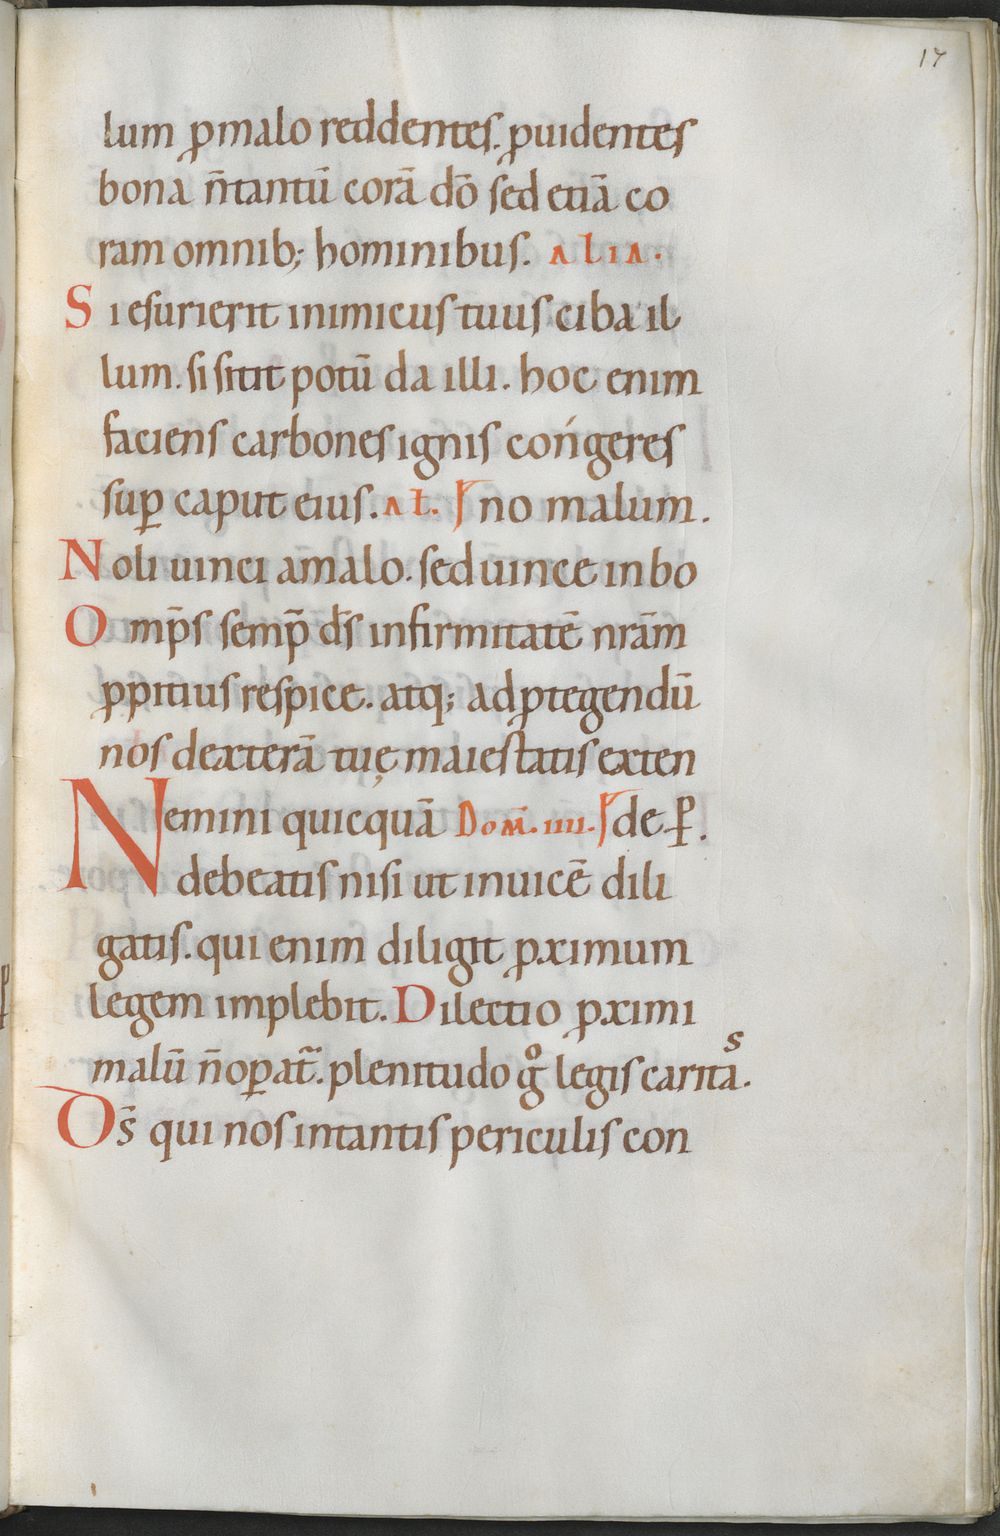 17
lum ꝓmalo reddentes. ꝓuidentes
bona n̄tantū corā dō sed etiā co
ram omnib; hominibus. ALIA.
Si esurierit inimicus tuus ciba il
lum. si sitit potū da illi. hoc enim
faciens carbones ignis congeres
suꝑ caput eius. Aƚ. no malum.
Noli uinci amalo. sed uince in bo
Omp̄s semp̄ d̄s infirmitatē nr̄am
ꝓpitius respice. atq; adꝓtegendū
nos dexterā tuę maiestatis exten
Nemini quicquā Dom̄. IIII. de. ꝑ.
debeatis nisi ut inuicē dili
gatis. qui enim diligit ꝓximum
legem implebit. Dilectio ꝓximi
malū n̄oꝑat̄. plenitudo gͦ legis caritas.
Ds̄ qui nos intantis periculis con